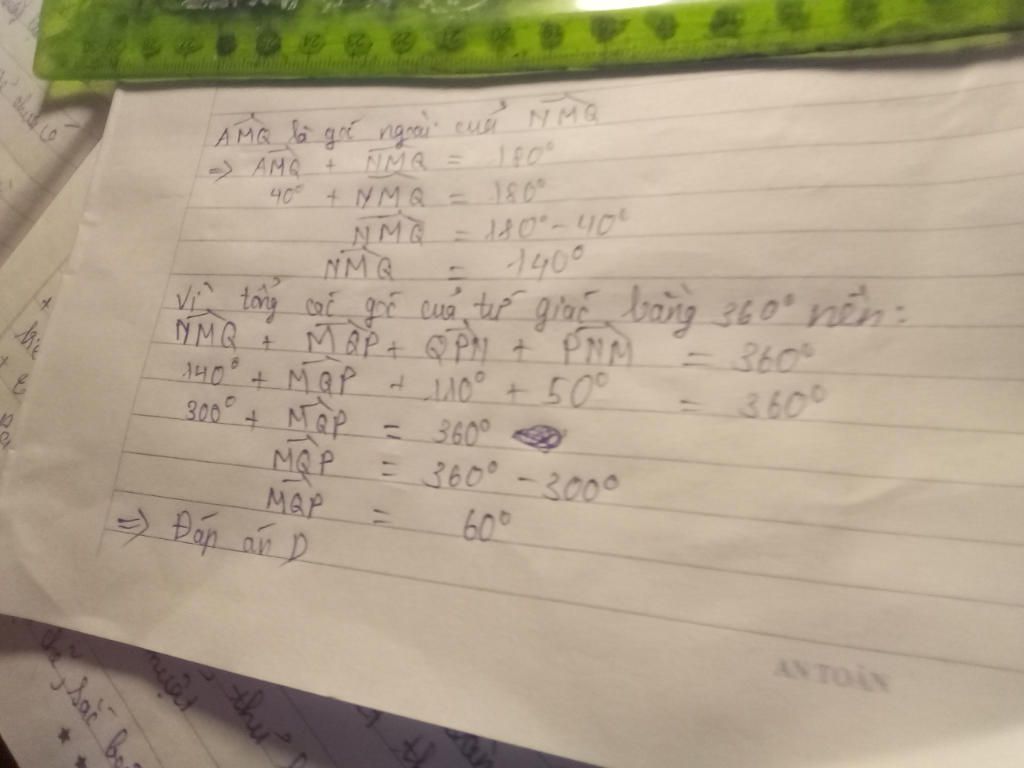 AMQ là góc ngoài của NMQ
=> AMQ + NMQ = 180°
40° + NMQ = 180°
NMQ = 180° - 40°
NMQ = 140°
Vì tổng các góc của tứ giác bằng 360° nên:
NMQ + MQP + QPN + PNM = 360°
140° + MQP + 110° + 50° = 360°
300° + MQP = 360°
MQP = 360° - 300°
MQP = 60°
=> Đáp án D
AN TOÀN